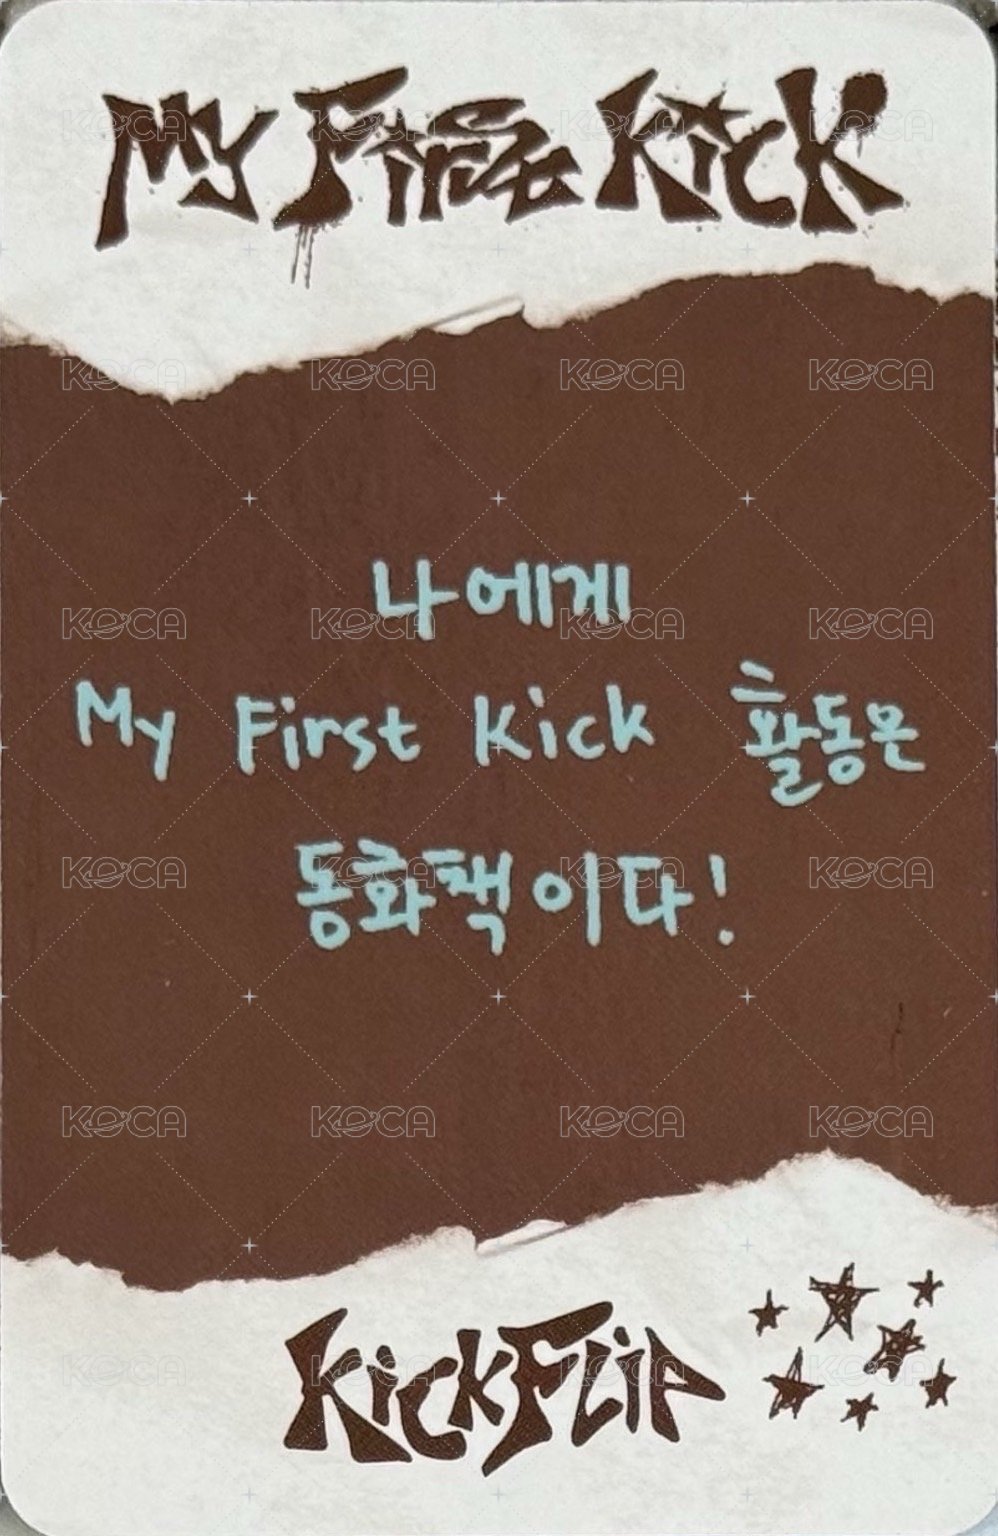 My First Kick
나에게
My First Kick 활동은
동화책이다!
KickFlip
KOCA KOCA KOCA KOCA
KOCA KOCA KOCA KOCA
KOCA KOCA KOCA KOCA
KOCA KOCA KOCA KOCA
KOCA KOCA KOCA KOCA
KOCA KOCA KOCA KOCA